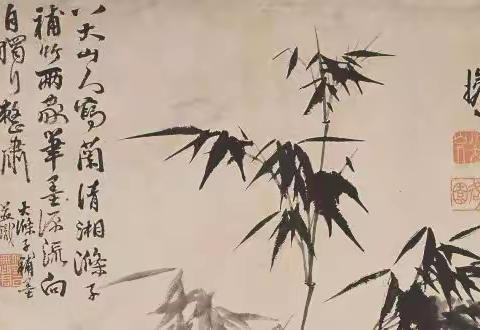 八大山人寫蘭清湘滌子
補竹兩家筆墨源流向
自獨行整肅
大滌子補墨
並識